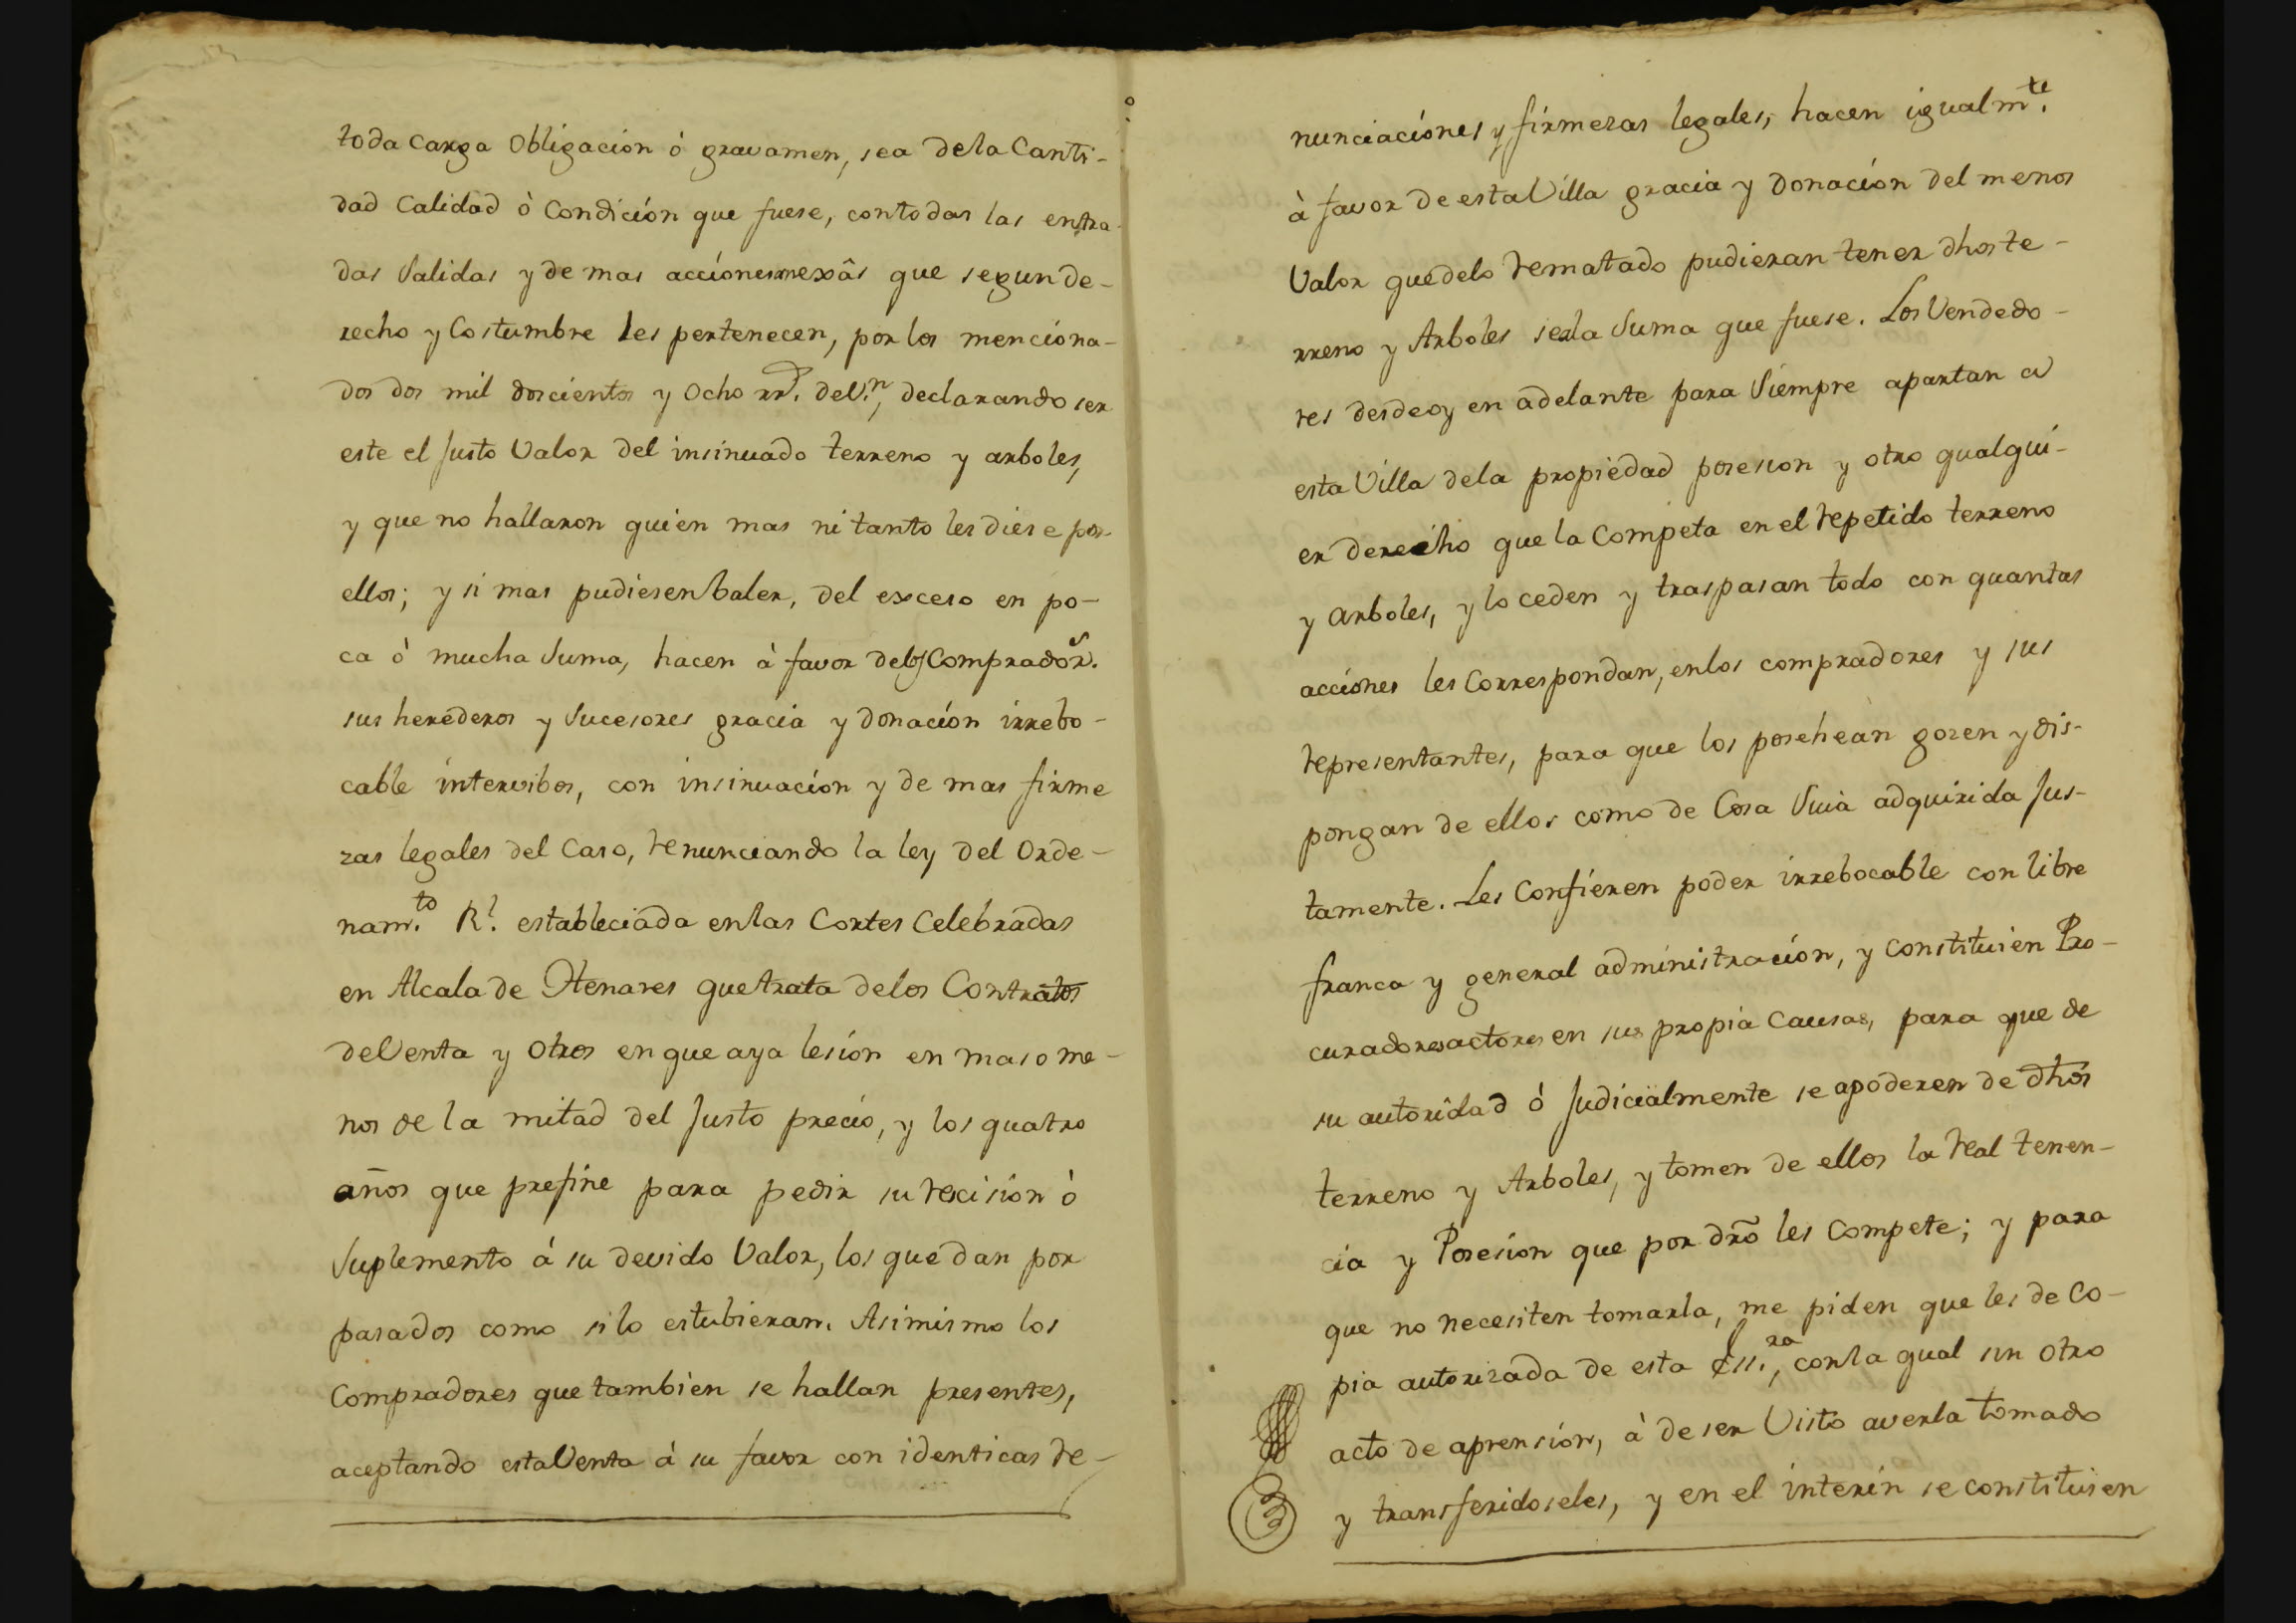 toda carga obligacion ò gravamen, sea dela Canti-
dad Calidad ò Condicion que fuese, contodas las entra-
das Salidas y de mas acciones anexâs que segun de-
recho y Costumbre les pertenecen, por los menciona-
dos dos mil doscientos y ocho rr.s de V.n, declarando ser
este el Justo Valor del insinuado terreno y arboles,
y que no hallaron quien mas ni tanto les diese por
ellos; y si mas pudiesen baler, del exceso en po-
ca ò mucha Suma, hacen à favor delos Comprador.s
sus herederos y Sucesores gracia y donación irrebo-
cable intervibos, con insinuacion y de mas firme
zas legales del Caso, renunciando la ley del Orde-
nam.to R.l estableciada enlas Cortes Celebradas
en Alcala de Henares que trata delos Contratos
de Venta y otros en que aya lesion en mas o me-
nos de la mitad del Justo precio, y los quatro
años que prefine para pedir su recision ò
Suplemento á su devido Valor, los que dan por
pasados como si lo estubieran. Asimismo los
Compradores que tambien se hallan presentes,
aceptando esta Venta á su favor con identicas re-
nunciaciones y firmezas legales, hacen igualm.te
à favor de esta Villa gracia y donación del menos
Valor que delo rematado pudieran tener dhos te-
rreno y Arboles sea la Suma que fuese. Los Vendedo-
res desde oy en adelante para Siempre apartan a
esta Villa dela propiedad posesion y otro qualqui-
er derecho que la Competa en el repetido terreno
y arboles, y lo ceden y traspasan todo con quantas
acciones les Correspondan, enlos compradores y sus
representantes, para que los posehean gozen y dis-
pongan de ellos como de Cosa Suia adquirida Jus-
tamente. Les Confieren poder irrebocable con libre
franca y general administración, y constituien Pro-
curadores actores en sus propia Causas, para que de
su autoridad ó Judicialmente se apoderen de dhos
terreno y Arboles, y tomen de ellos la real tenen-
cia y Posesion que por dro les Compete; y para
que no necesiten tomarla, me piden que les de Co-
pia autorizada de esta ess.ra, con la qual sin otro
acto de aprension, à de ser Visto averla tomado
y transferidoseles, y en el interin se constituien